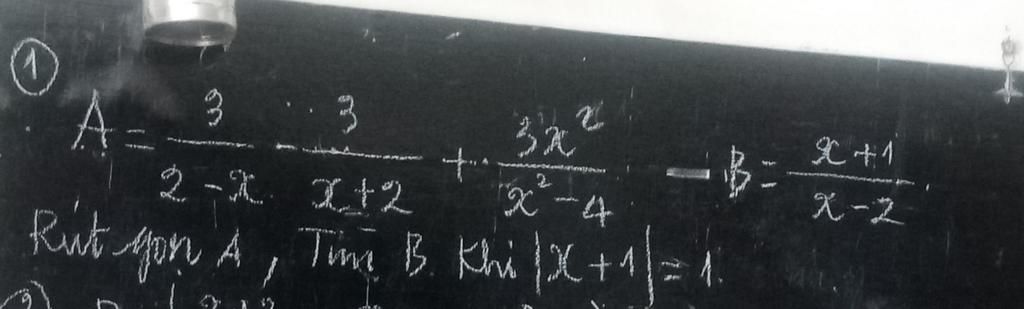 ① A = 3/(2-x) - 3/(x+2) + 3x²/(x²-4) - B = (x+1)/(x-2).
Rút gọn A, Tìm B Khi |x+1| = 1.